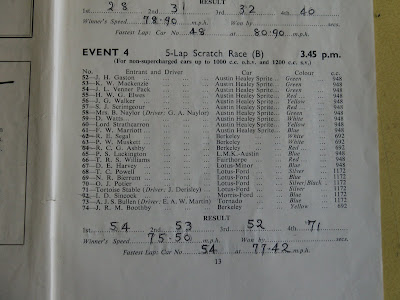 1st 28 2nd 31 3rd 32 4th 40
Winner's Speed 78.90 m.p.h. Won by secs.
Fastest Lap: Car No 48 at 80.90 m.p.h.
EVENT 4 5-Lap Scratch Race (B) 3.45 p.m.
(For non-supercharged cars up to 1000 c.c. o.h.v. and 1200 c.c. s.v.)
No. Entrant and Driver Car Colour c.c.
52—J. H. Gaston Austin Healey Sprite Green 948
53—K. W. Mackenzie Austin Healey Sprite Green 948
54—J. L. Venner Pack Austin Healey Sprite Green 948
55—H. W. G. Elwes Austin Healey Sprite Red 948
56—J. G. Walker Austin Healey Sprite Yellow 948
57—S. J. Scrimgeour Austin Healey Sprite Red 948
58—Mrs. B. Naylor (Driver: G. A. Naylor) Austin Healey Sprite Green 948
59—D. Watts Austin Healey Sprite White 948
60—Lord Strathcarron Austin Healey Sprite Yellow 948
61—P. W. Marriott Austin Healey Sprite Blue 948
62—R. E. Segal Berkeley White 692
63—P. W. Maskett Berkeley White 692
64—R. C. G. Ashby Berkeley White 692
65—P. S. Luckington L.M.K.-Austin Blue 948
66—T. R. S. Williams Fairthorpe Red 948
67—D. E. Harvey Lotus-Minor Blue 948
68—T. C. Powell Lotus-Ford Silver 1172
69—N. R. Bierrum Lotus-Ford Blue 1172
70—O. J. Potier Lotus-Ford Silver/Black 1172
71—Tortoise Stable (Driver: J. Derisley) Lotus-Ford Red 1172
92—I. D. Smoek Morris-Ford Blue 1172
73—A. J. S. Bullen (Driver: E. A. W. Martin) Tornado Blue 1172
74—J. R. M. Boothby Berkeley Yellow 692
RESULT
1st 54 2nd 53 3rd 52 4th 71
Winner's Speed 75.50 m.p.h. Won by secs.
Fastest Lap: Car No 54 at 77.42 m.p.h.
13